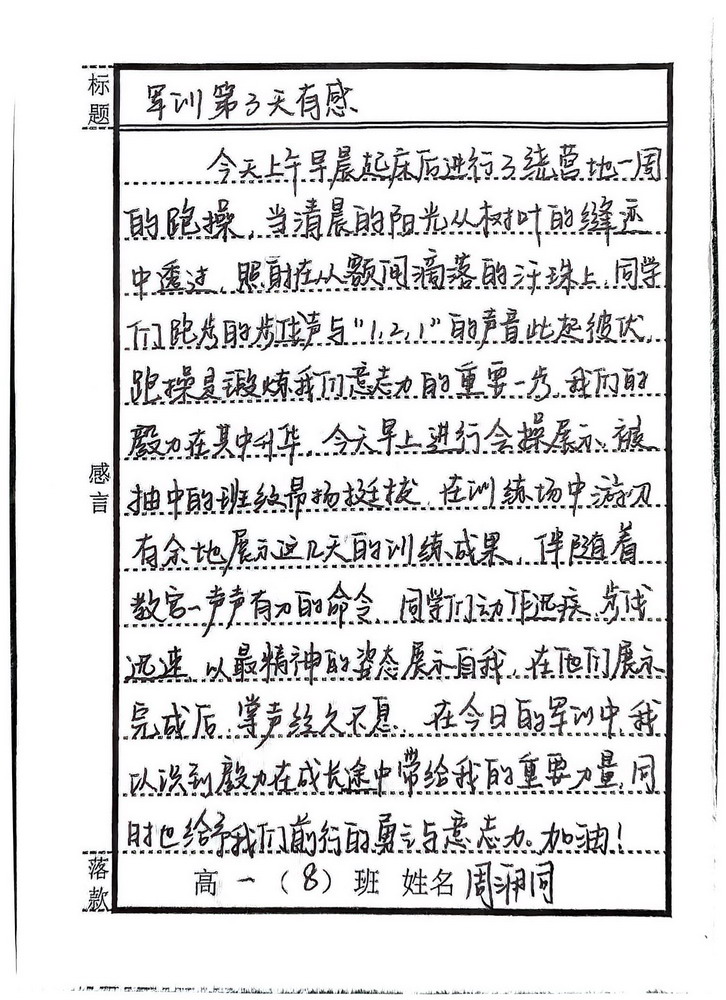 标题
军训第3天有感
今天上午早晨起床后进行了绕营地一周
的跑操，当清晨的阳光从树叶的缝迹
中透过，照射在从额间滴落的汗珠上，同学
们跑步的步伐声与“1，2，1”的声音此起彼伏，
跑操是锻炼我们意志力的重要一步，我们的
毅力在其中升华，今天早上进行会操展示，被
抽中的班级昂扬挺拔，在训练场中游刃
感言
有余地展示这几天的训练成果，伴随着
教官一声声有力的命令，同学们动作迅疾，步伐
迅速，以最精神的姿态展示自我，在他们展示
完成后，掌声经久不息，在今日的军训中，我
认识到毅力在成长途中带给我的重要力量，同
时也给予我们前行的勇气与意志力。加油！
落款
高一（8）班 姓名 周同